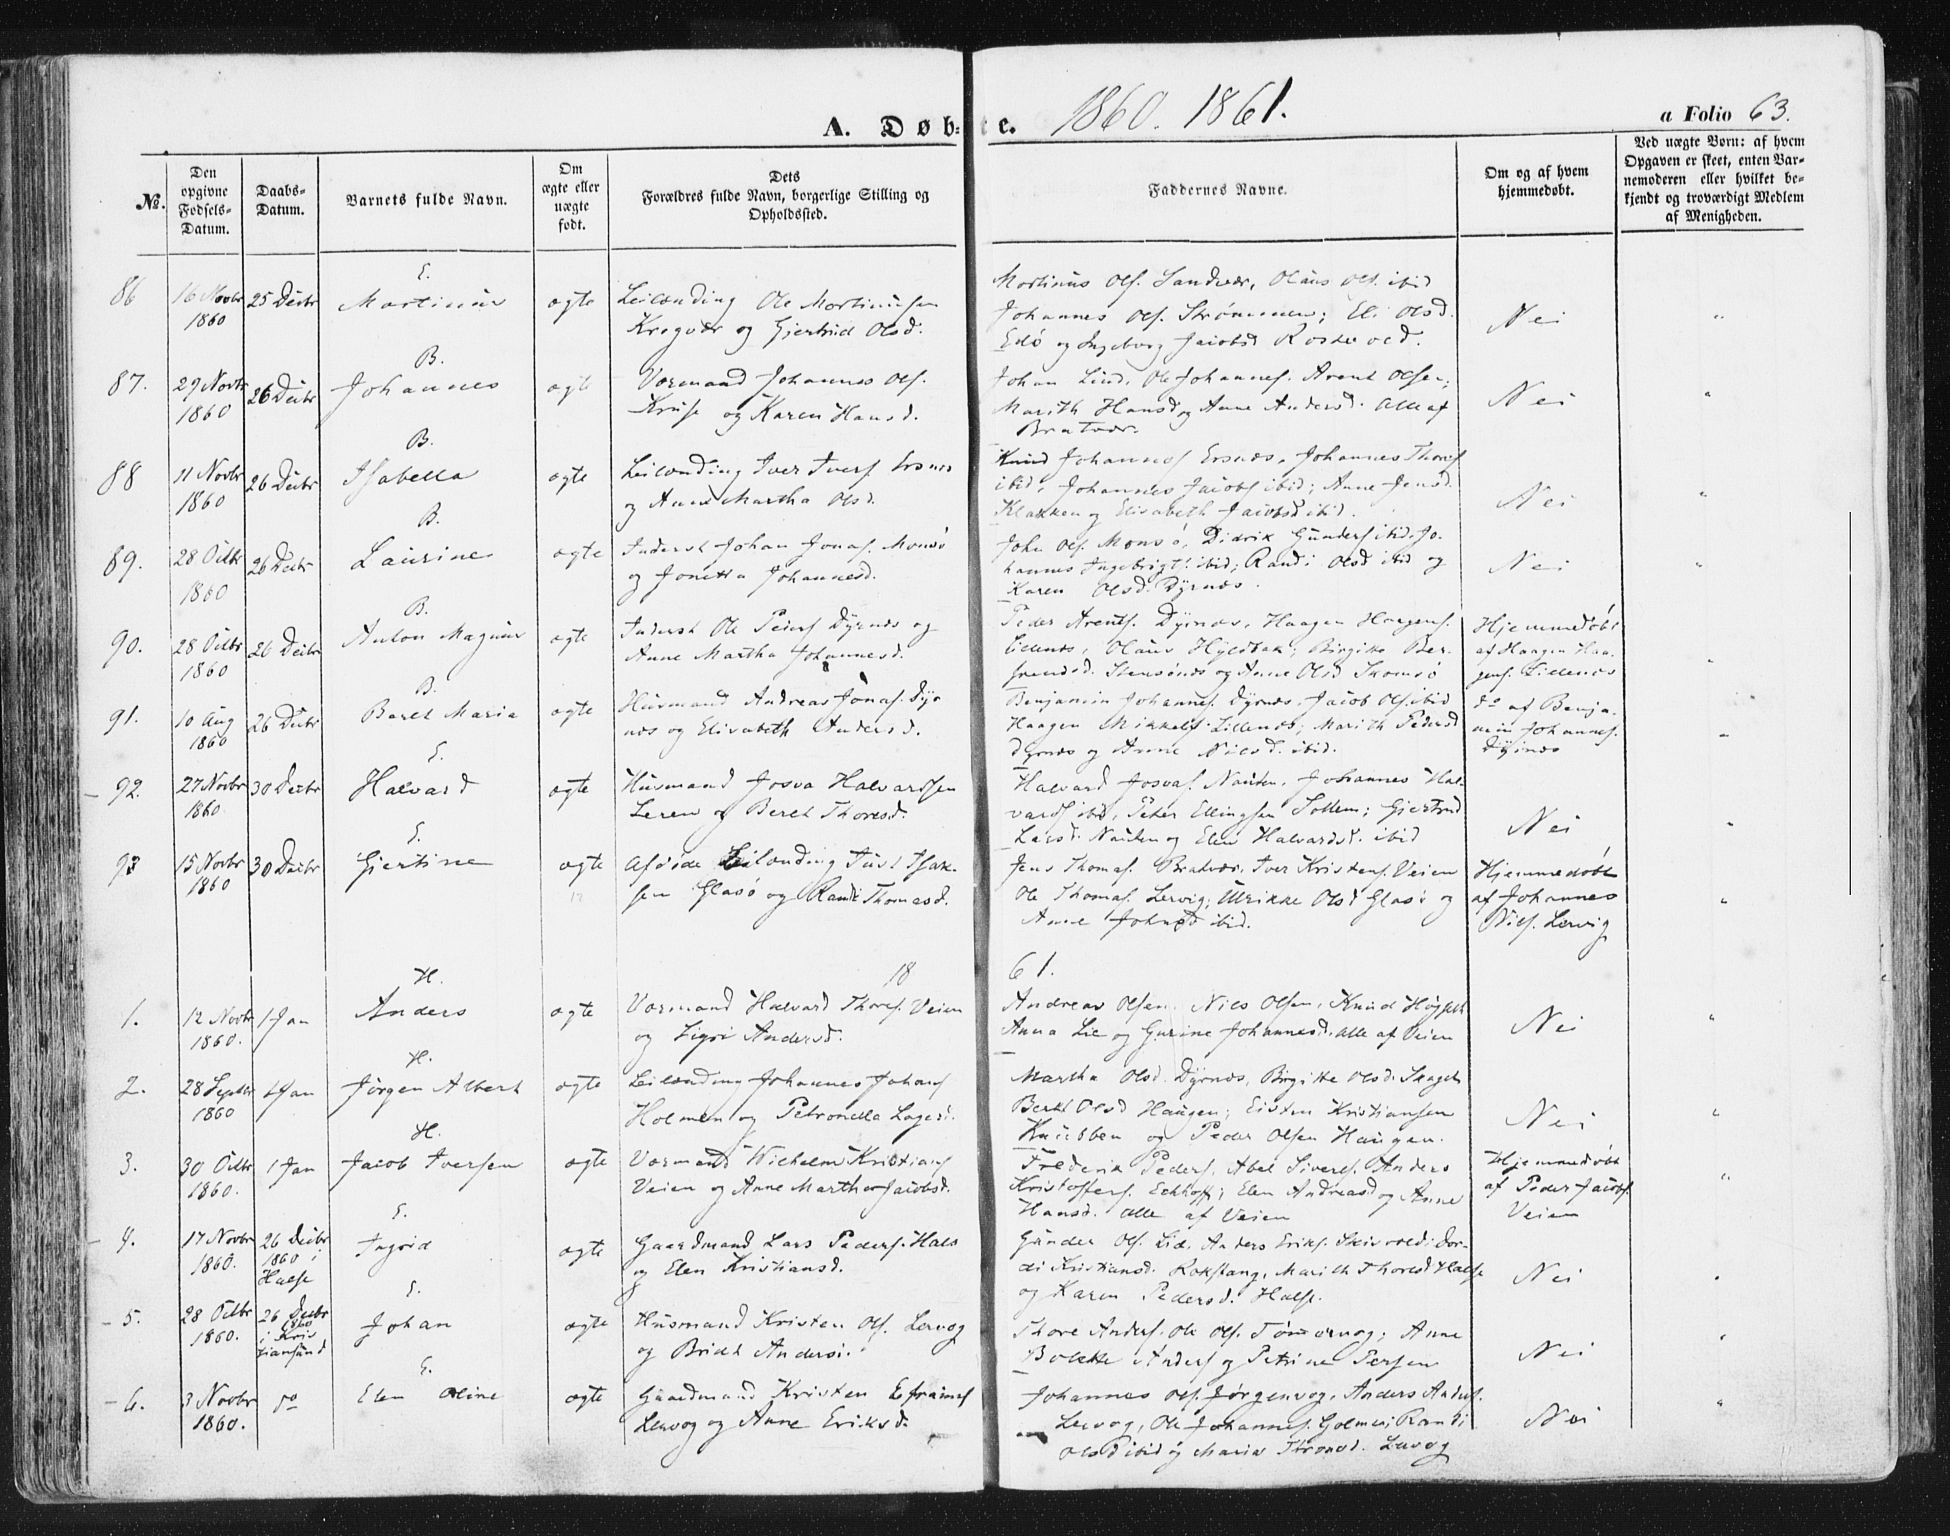 A. Døbte. 1860. 1861. a Folio 63.
No.
Den opgivne Fødsels-Datum.
Daabs-Datum.
Barnets fulde Navn.
Om ægte eller uægte født.
Dets Forældres fulde Navn, borgerlige Stilling og Opholdssted.
Faddernes Navne.
Om og af hvem hjemmedøbt.
Ved uægte Børn: af hvem Opgaven er skeet, enten Barnemoderen eller hvilket bekjendt og troværdigt Medlem af Menigheden.
E.
86 16 Novbr 1860 25 Decbr Martinus ægte
Leilænding Ole Martinusen
Kragvær og Gjertrud Olsd.
Martinus Ols. Sandvær, Olaus Ols. ibid
Johannes Ols. Strømmen; Eli Olsd.
Edø og Ingeborg Jacobsd
Nei "
B.
87. 29 Novbr 1860 26 Decbr Johannes ægte
Værmand Johannes Ols.
Kruse og Karen Hansd.
Johan Lind, Ole Johannes. Arent Olsen;
Marith Hansd og Anne Andersd. alle af
Bratvær.
Nei "
B.
88 11 Novbr 1860 26 Decbr Isabella ægte
Leilænding Iver Ivers. Ersnes
og Anne Martha Olsd.
Knud Johannes Ersnes, Johannes Thores
ibid, Johannes Jacobs ibid; Anne Jensd.
Klakken og Elisabeth Jacobsd ibid.
Nei "
B.
89. 28 Octbr 1860 26 Decbr Laurine ægte
Inderst Johan Jonas. Monsø
og Jonetta Johannesd.
John Ols. Monsø, Didrik Gunders ibid, Jo-
hannes Ingebrigts. ibid; Randi Olsd ibid og
Karen Olsd. Dyrnes.
Nei "
B.
90. 28 Octbr 1860 26 Decbr Anton Magnus ægte
Inderst Ole Peders Dyrnes og
Anne Martha Johannesd.
Peder Arents. Dyrnes, Haagen Haagens.
Lillenes, Olaus Hyldbak; Birgitte Ber-
og Anne Olsd
Hjemmedøbt
af Haagen Haa-
gens. Lillenes
"
B.
91. 10 Aug 1860 26 Decbr Beret Maria ægte
Husmand Andreas Jonas. Dyr
nes og Elisabeth Andersd.
Benjamin Johannes. Dyrnes, Jacob Ols. ibid
Haagen Mikkels. Lillenes; Marith Pedersd
Dyrnes og Anne Nilsd. ibid.
do af Benja-
min Johannes.
Dyrnes
"
E.
92. 27 Novbr 1860 30 Decbr Halvard ægte
Husmand Josva Halvardsen
Leren og Beret Thoresd.
Halvard Josvas. Nausten, Johannes Hal-
vards ibid, Peter Ellingsen Sollem; Gjertrud
Larsd. Nausten og Elen Halvardsd. ibid
Nei "
E.
93 15 Novbr 1860 30 Decbr Gjertine ægte
Afdøde Leilænding Just Isak-
sen Glasø og Randi Thomasd.
Jens Thomas. Bratvær, Iver Kristens. Veien
Ole Thomas. Lervig; Ulrikke Olsd Glasø og
Anne Johnsd ibid.
Hjemmedøbt
af Johannes
Nils. Lervig
"
1861.
H.
1. 12 Novbr 1860. 1 Jan Anders ægte
Værmand Halvard Thores. Veien
og Sigri Andersd.
Andreas Olsen, Nils Olsen, Knud
Anna Lie og Gurine Johannesd. alle af Veien
Nei "
H.
2. 28 Septbr 1860 1 Jan Jørgen Albert ægte
Leilænding Johannes Johans
Holmen og Petronella Lagesd.
Martha Olsd. Dyrnes, Birgitte Olsd. Skaget
Beret Olsd Haugen; Eisten Kristiansen
Knubben og Peder Olsen Haugen.
Nei "
H.
3. 30 Octbr 1860. 1 Jan Jacob Iversen ægte
Værmand Wilhelm Kristians
Veien og Anne Martha Jacobsd.
Frederik Peders. Abel Sivers. Anders
Kristoffers. Eckhoff; Elen Andreasd og Anne
Hansd. alle af Veien
Hjemmedøbt
af Peder Jacobs.
Veien
"
E.
4. 17 Novbr 1860. 26 Decbr 1860 i Halse Ingrid ægte
Gaardmand Lars Peders. Hals
og Elen Kristiansd.
Gunder Ols. Lid, Anders Eriks. Skivvold; Dor-
di Kristiansd. Rokstang, Marith Thoresd Halse
og Karen Pedersd. Halse.
Nei "
E.
5. 28 Octbr 1860. 26 Decbr 1860 i Kristiansund Johan ægte
Husmand Kristen Ols. Lervog
og Bridt Andersd.
Thore Anders. Ole Ols. Tømmervog; Anne
Bolette Anders og Petrine Persen
Nei "
E.
6. 3 Novbr 1860. do Elen Oline ægte
Gaardmand Kristen Efraims
Lervog og Anne Eriksd.
Johannes Ols. Jørgenvog, Anders Anders.
Lervog, Ole Johannes. Golmen; Randi
Olsd ibid og Marie Lervog
Nei "